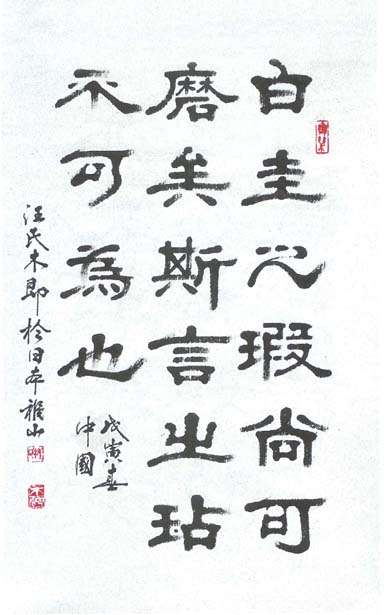 白圭之瑕尚可
磨矣斯言之玷
不可為也
戊寅春
中國
汪氏木即於日本雅山